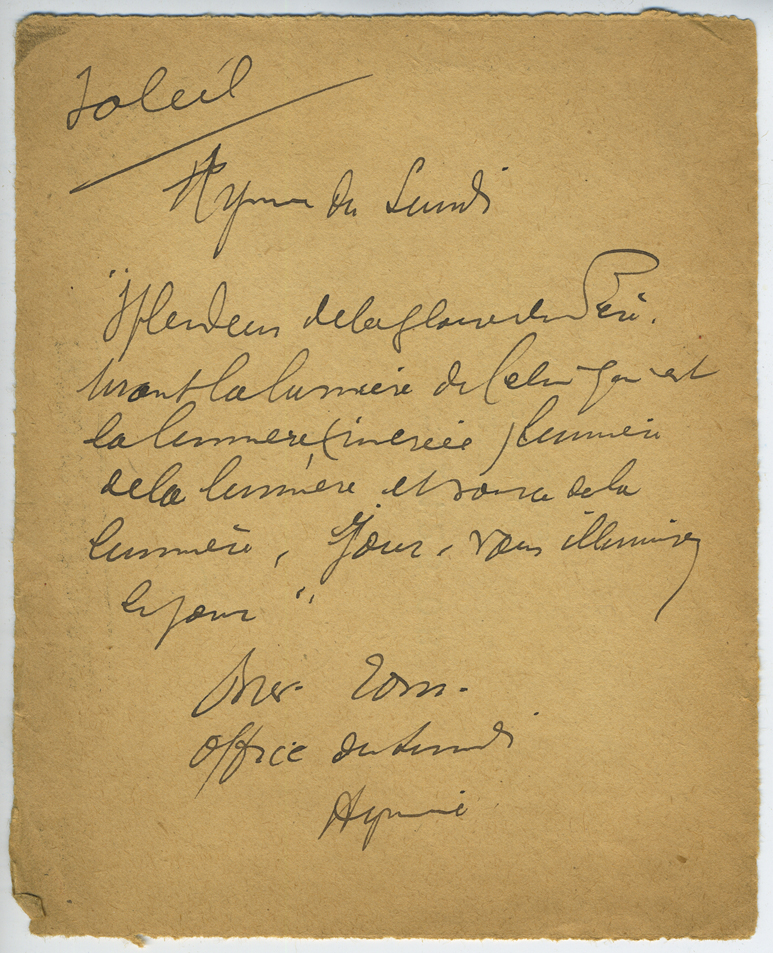 Soleil
Hymne du Lundi
"Splendeur de la gloire du Père.
tirant la lumière de Celui qui est
la lumière (incréée) lumière
de la lumière et source de la
lumière, Jour, vous illuminez
le jour"
Brev. Rom.
Office du Lundi
Hymne